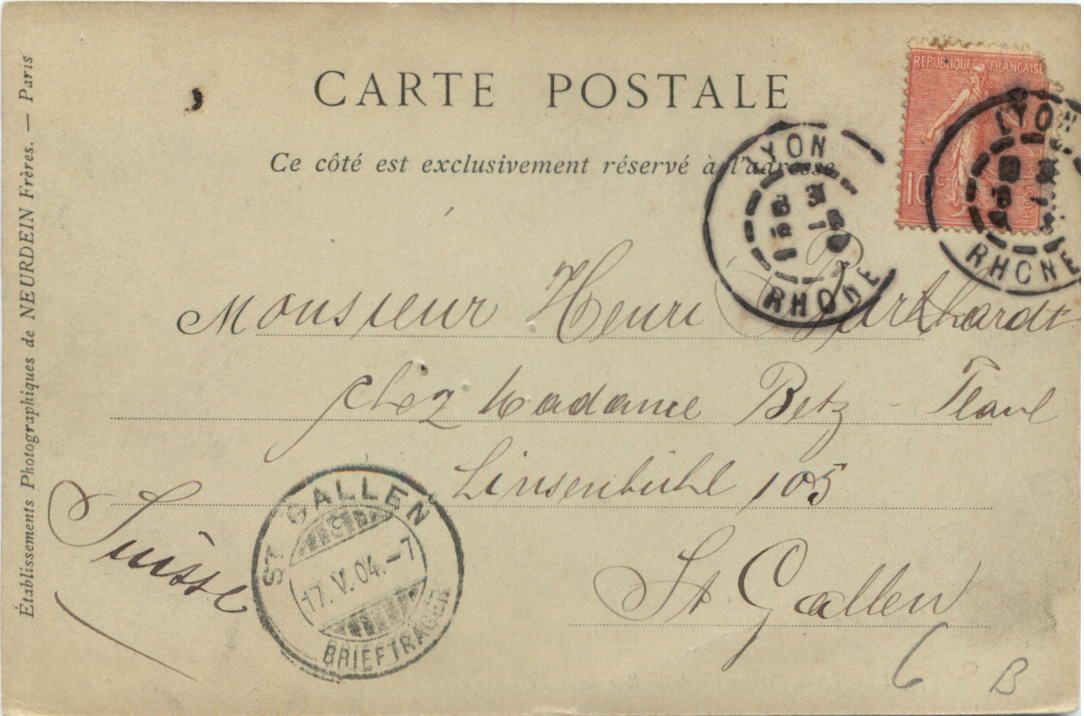 CARTE POSTALE
Ce côté est exclusivement réservé à l'adresse
Établissements Photographiques de NEURDEIN Frères. — Paris
REPUBLIQUE FRANÇAISE
10 c
LYON
RHONE
LYON
RHONE
Monsieur Henri Burkhardt
chez Madame Betz -
Linsenbühl 105
St Gallen
Suisse
ST. GALLEN
17.V.04.-7
BRIEFTRÄGER
6 B